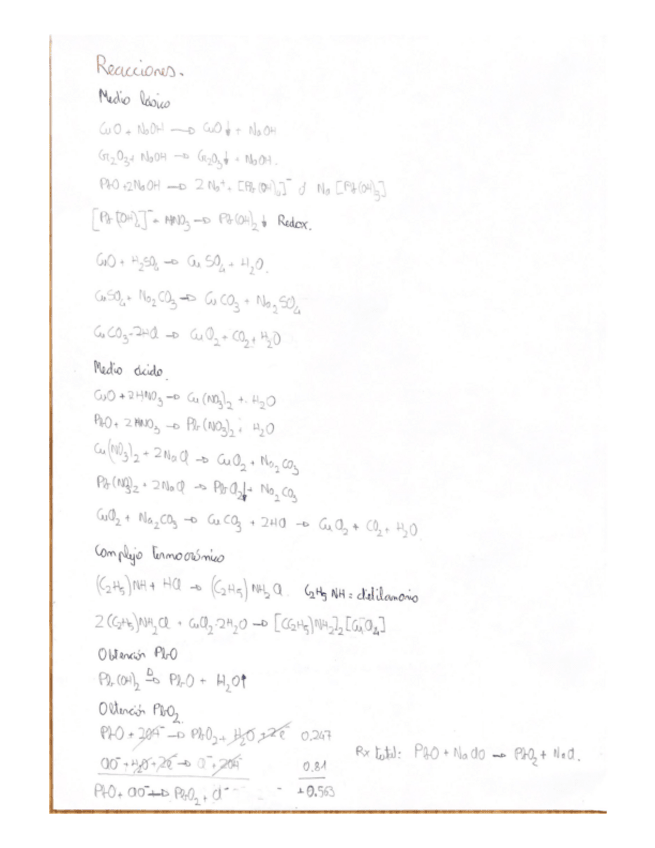 Reacciones.
Medio básico
CuO + NaOH → CuO↓ + NaOH
Cr₂O₃ + NaOH → Cr₂O₃↓ + NaOH.
PbO + 2NaOH → 2Na⁺ + [Pb(OH)₃]⁻ ó Na[Pb(OH)₃]
[Pb(OH)₃]⁻ + HNO₃ → Pb(OH)₂↓ Redox.
CuO + H₂SO₄ → CuSO₄ + H₂O.
CuSO₄ + Na₂CO₃ → CuCO₃ + Na₂SO₄
CuCO₃ · 2HCl → CuCl₂ + CO₂ + H₂O
Medio ácido.
CuO + 2HNO₃ → Cu(NO₃)₂ + H₂O
PbO + 2HNO₃ → Pb(NO₃)₂ + H₂O
Cu(NO₃)₂ + 2NaCl → CuCl₂ + Na₂CO₃
Pb(NO₃)₂ + 2NaCl → PbCl₂↓ + Na₂CO₃
CuCl₂ + Na₂CO₃ → CuCO₃ + 2HCl → CuCl₂ + CO₂ + H₂O
Complejo termocrómico
(C₂H₅)NH + HCl → (C₂H₅)NH₂Cl. C₂H₅NH = dietilamonio
2(C₂H₅)NH₂Cl + CuCl₂·2H₂O → [(C₂H₅)NH₂]₂[CuCl₄]
Obtención PbO
Pb(OH)₂ →Δ PbO + H₂O↑
Obtención PbO₂
PbO + 2OH⁻ → PbO₂ + H₂O + 2e⁻ 0.247
ClO⁻ + H₂O + 2e⁻ → Cl⁻ + 2OH⁻ 0.81
Rx total: PbO + NaClO → PbO₂ + NaCl.
PbO + ClO⁻ → PbO₂ + Cl⁻ +0.563